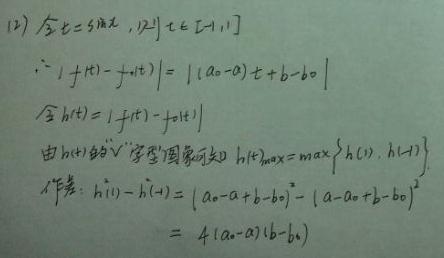 (2) 令t=sinx,则t∈[-1,1]
∴|f(t)-f₀(t)|=|(a₀-a)t+b-b₀|
令h(t)=|f(t)-f₀(t)|
由h(t)的"V"字型图象可知h(t)max=max{h(1),h(-1)}.
作差:h²(1)-h²(-1)=(a₀-a+b-b₀)²-(a-a₀+b-b₀)²
=4(a₀-a)(b-b₀)